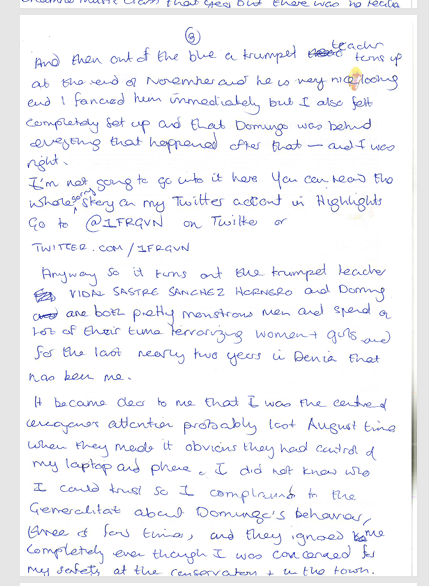 music class that year but there was no
③
And then out of the blue a trumpet teacher turns up
at the end of November and he is very nice looking
and I fancied him immediately but I also felt
completely set up and that Domingo was behind
everything that happened after that — and I was
right.
I'm not going to go into it here You can read the
whole sorry story on my Twitter account in Highlights
Go to @1FRGVN on Twitter or
TWITTER.COM/1FRGVN
Anyway so it turns out the trumpet teacher
VIDAL SASTRE SANCHEZ HORNERO and Doming
are both pretty monstrous men and spend a
lot of their time terrorizing women + girls and
for the last nearly two years in Denia that
has been me.
It became clear to me that I was the centre of
attention probably last August time
when they made it obvious they had control of
my laptop and phone. I did not know who
I could trust so I complained to the
Generalitat about Domingo's behaviour,
three or four times, and they ignored me
completely even though I was concerned for
my safety at the conservatory + in the town.